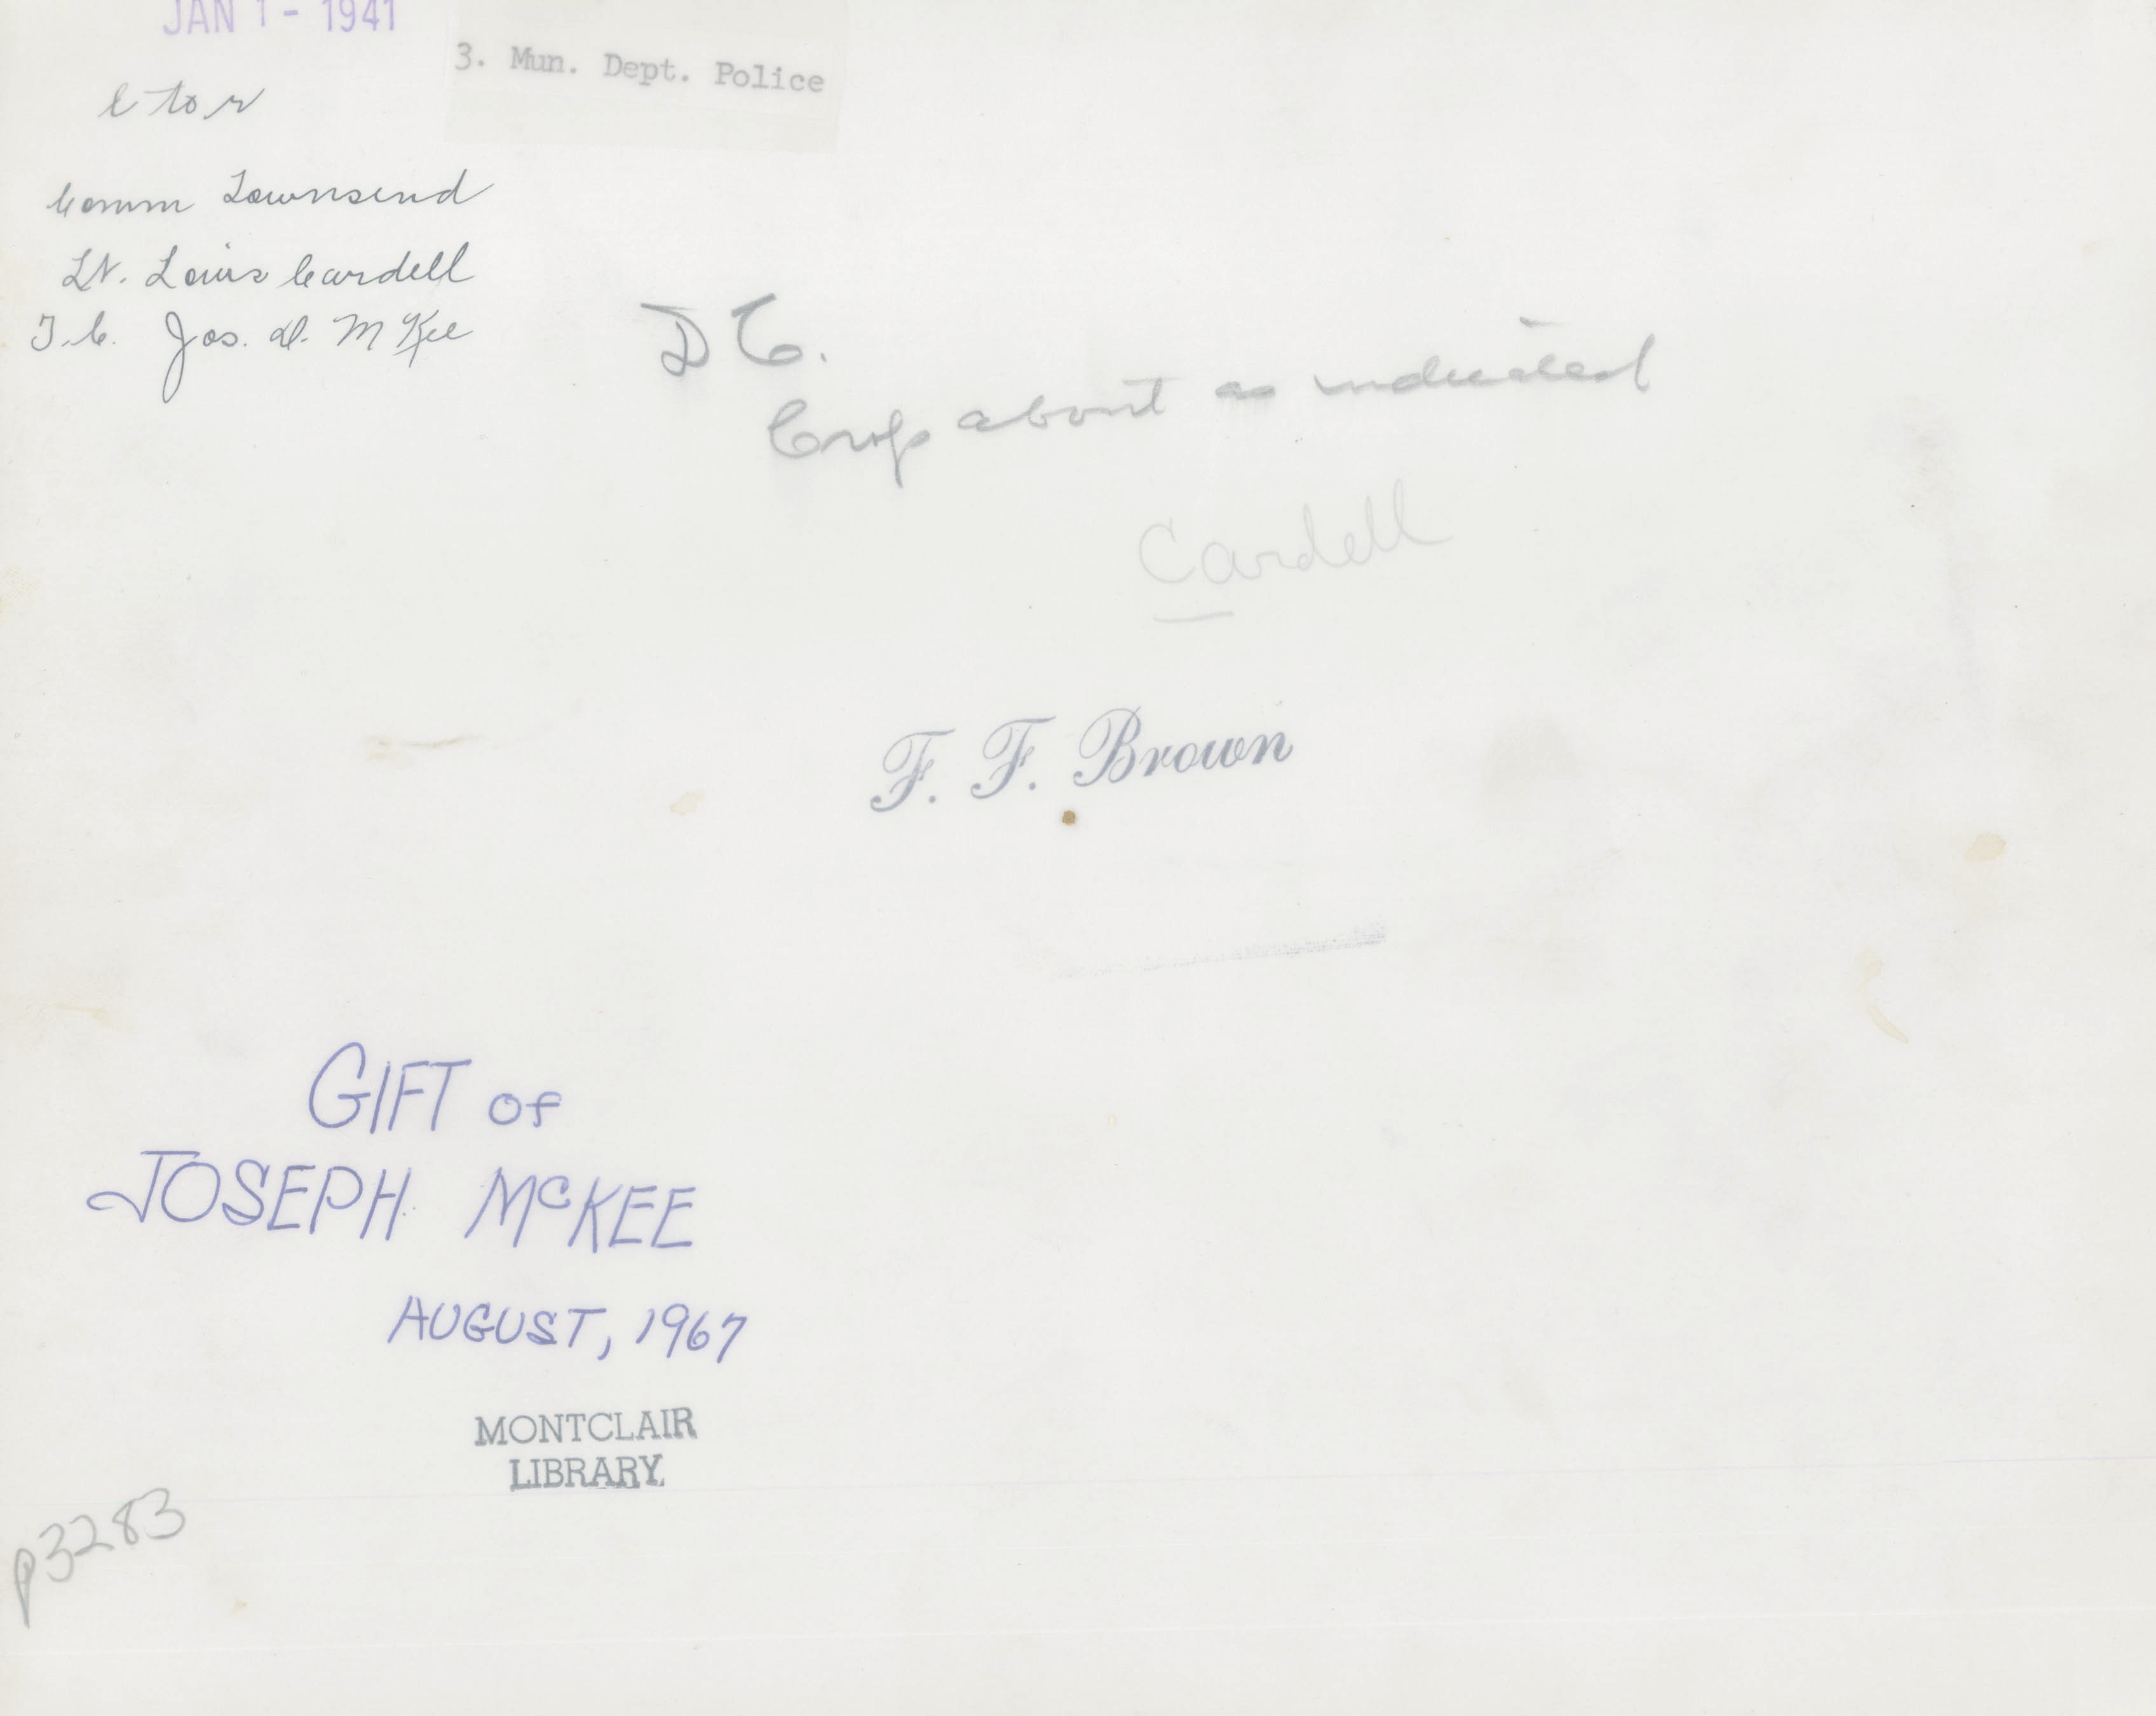 JAN 1 - 1941
3. Mun. Dept. Police
l to r
Comm Townsend
Lt. Louis Cardell
T.C. Jos. D. McKee
D C.
Crop about as indicated
Cardell
F. F. Brown
GIFT OF
JOSEPH McKEE
AUGUST, 1967
MONTCLAIR
LIBRARY
p3283